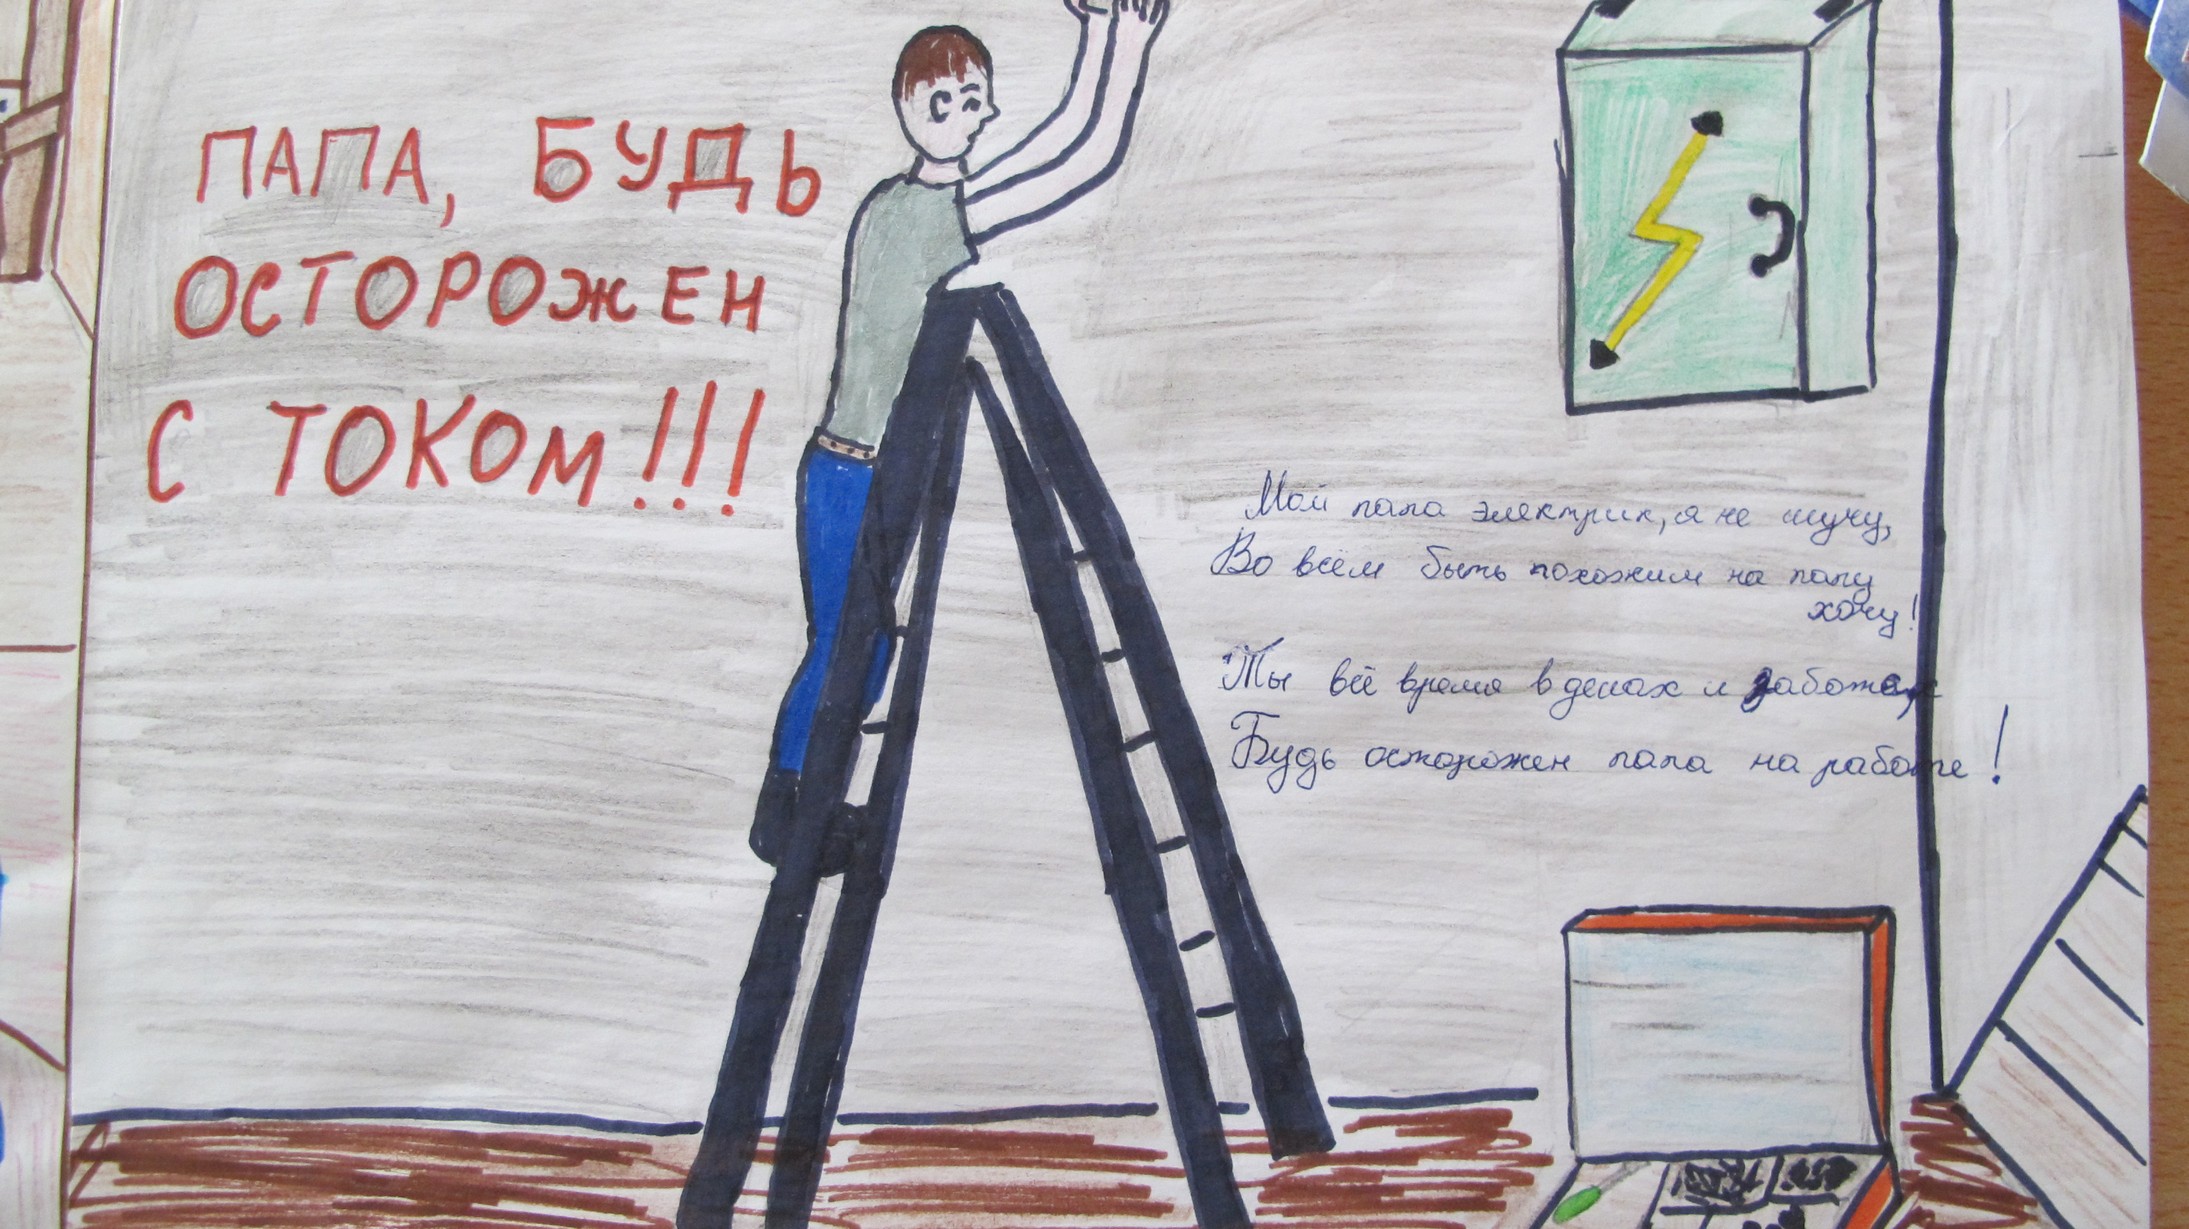 ПАПА, БУДЬ
ОСТОРОЖЕН
С ТОКОМ!!!
Мой папа электрик, я не шучу,
Во всём быть похожим на папу
хочу!
Ты всё время в делах и заботах,
Будь осторожен папа на работе!